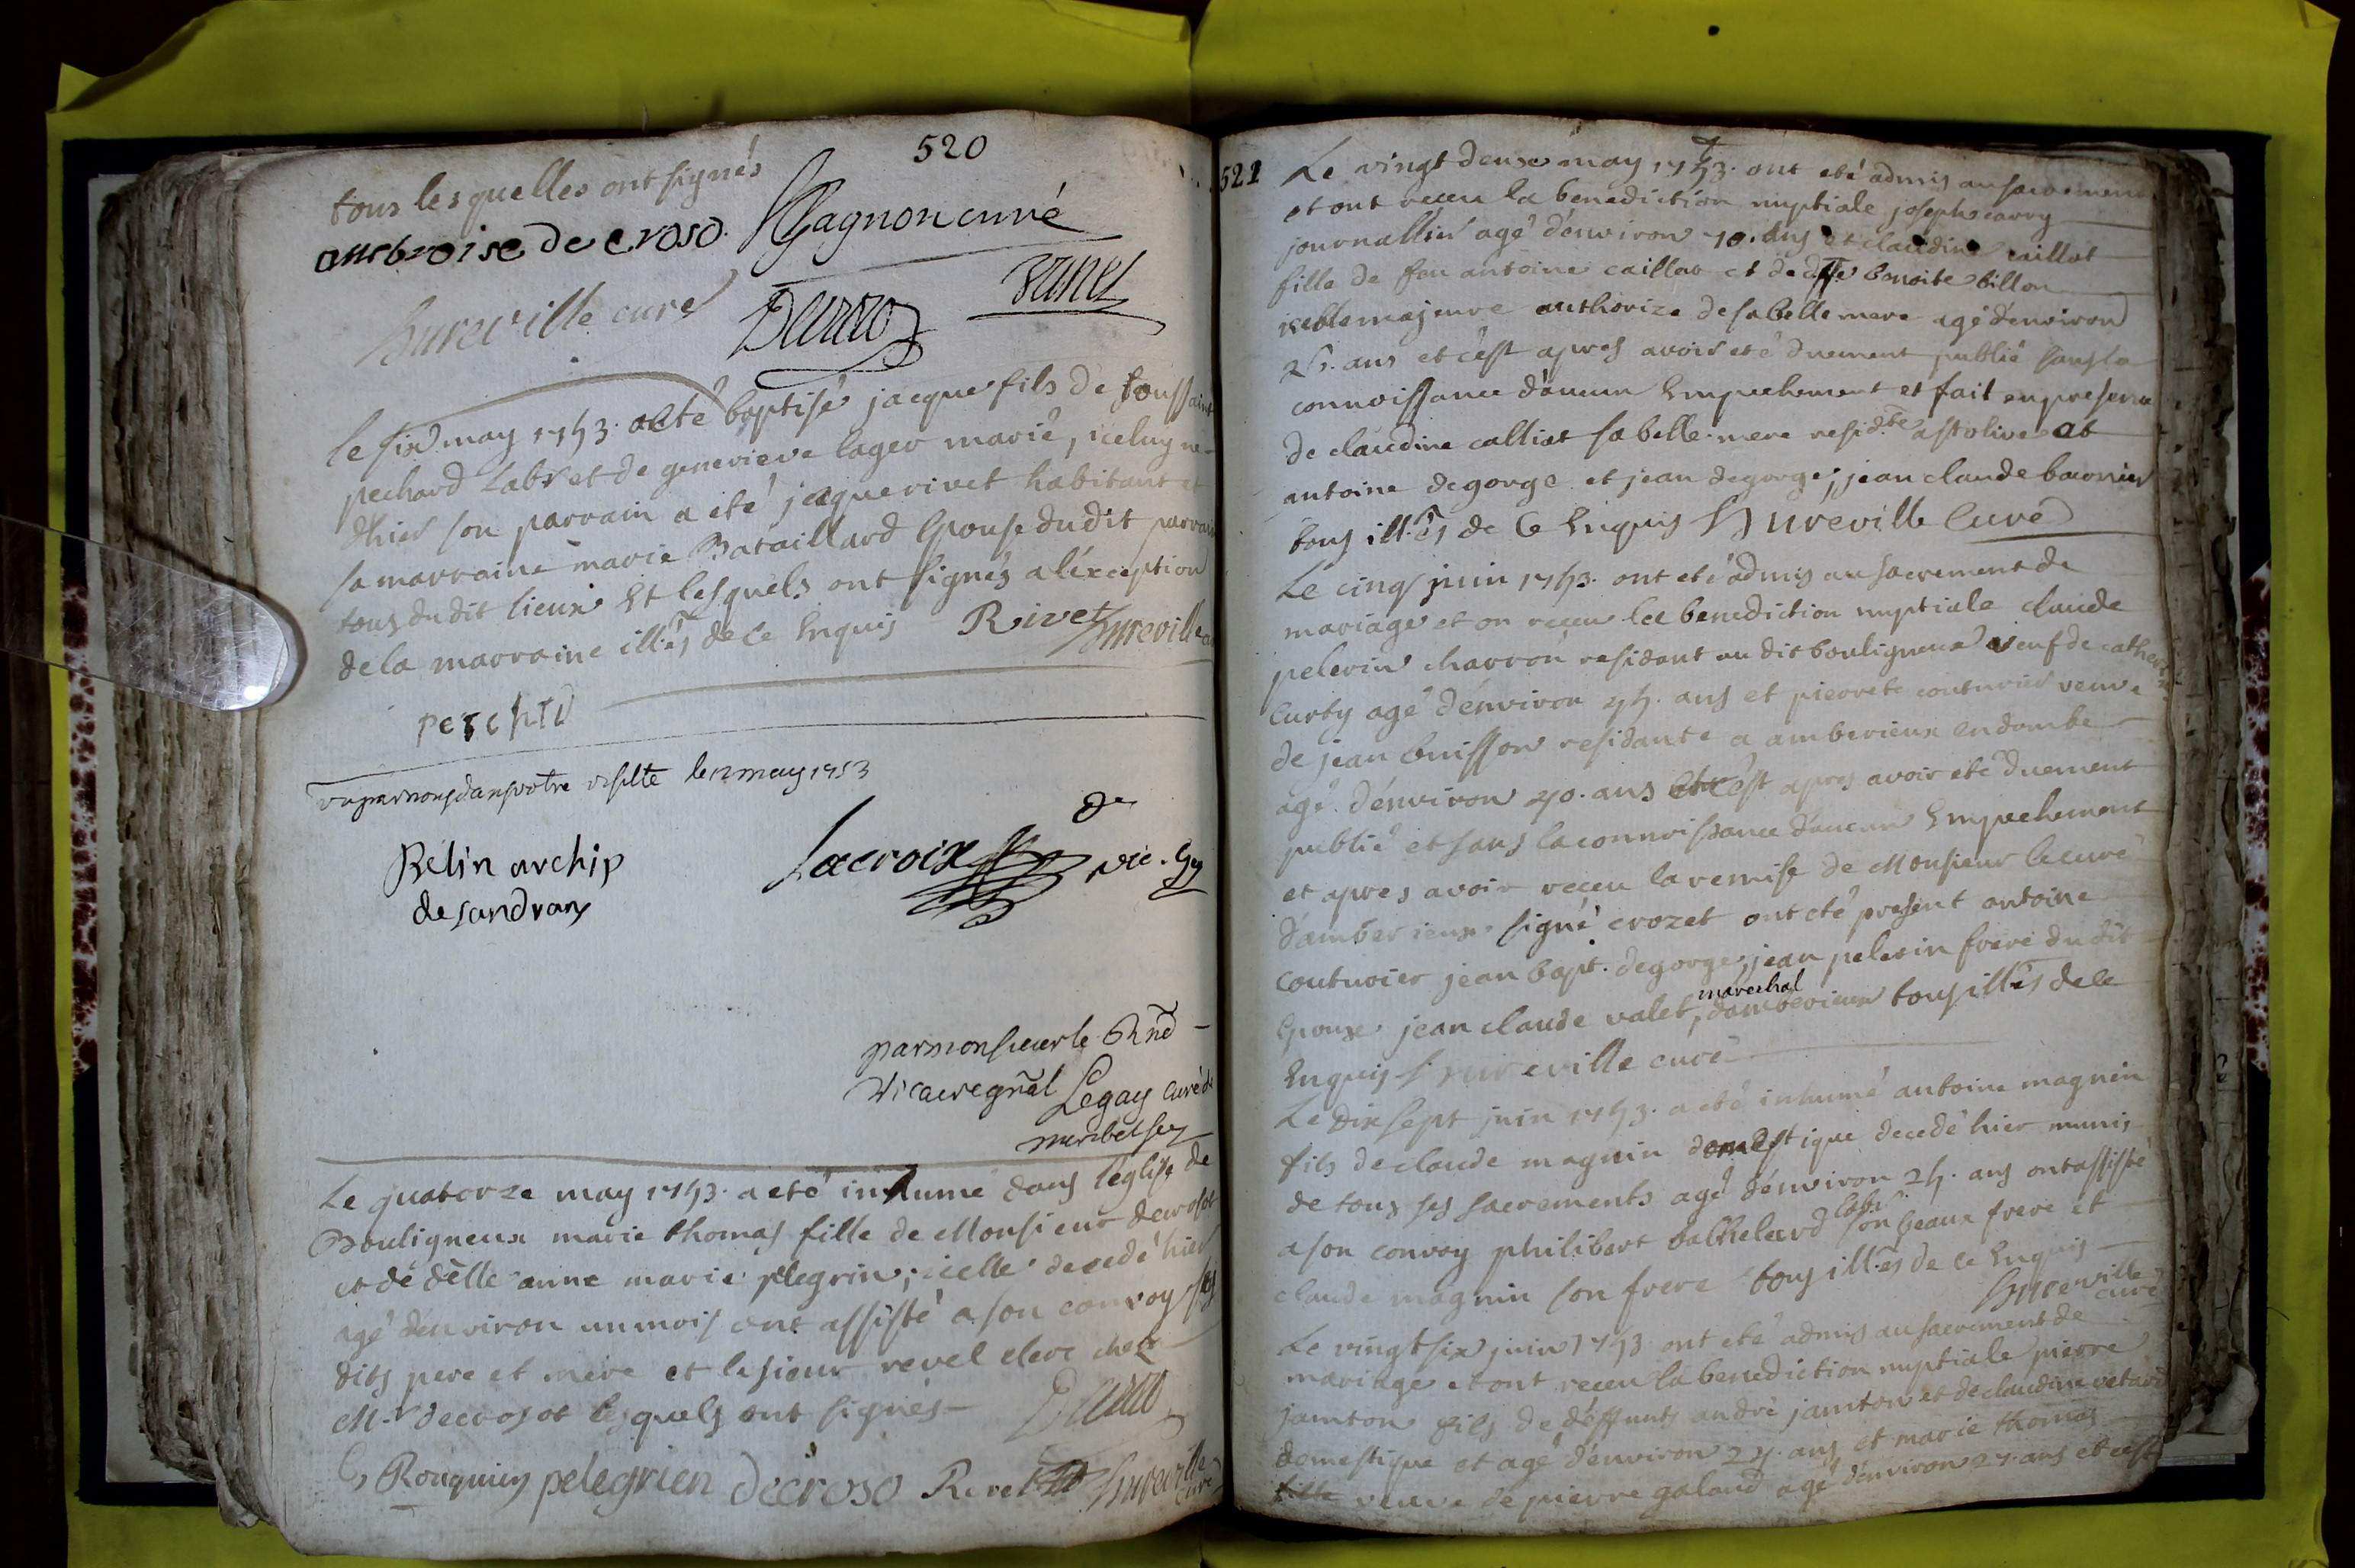 520
tous lesquelles ont signés
ambroise de croso. Gagnon curé
hureville curé Durro
le six may 1753. a eté baptisé jacque fils de toussaint
pechard labr et de genevieve lager marié, iceluy ne
d'hier son parrain a eté jacque rivet habitant et
sa marraine marie Bataillard Epouse du dit parrain
tous du dit lieux Et lesquels ont signés a l'exception
de la marraine ill.és de ce Enquis Rivet hureville
vu par nous dans notre visitte le 12 may 1753
de
Belin archip Lacroix vic. g
de sandrans
par monsieur le Rnd
vicaire gñal Legay curé de
Le quatorze may 1753. a eté inhumé dans l'église de
Bouligneux marie thomas fille de Monsieur decrosot
et de delle anne marie pelegrin; icelle decedé hier
agé d'environ un mois ont assisté a son convoy ses
dits pere et mere et le sieur revel clerc chez
M.r decrosot lesquels ont signés
pelegrien decroso Revel hureville curé
521
Le vingt deuse may 1753. ont eté admis au sacrement
et ont receu la benediction nuptiale joseph carry
journallier agé d'environ 40. ans et claudine caillat
fille de feu antoine caillat et de benoite billon
icelle majeure authorize de sa belle mere agé d'environ
25. ans et c'est apres avoir eté duement publié sans la
connoissance d'aucun Empechement et fait en presence
de claudine calliat sa belle mere residte a st olive et
antoine degorge et jean degorge, jean claude
tous ill.és de ce Enquis hureville Curé
Le cinq juin 1753. ont eté admis au sacrement de
mariage et on receu la benediction nuptiale claude
pelerin charron residant au dit bouligneux veuf de catherine
Curty agé d'environ 45. ans et pierrete couturier veuve
de jean buisson residante a amberieux en dombe
agé d'environ 40. ans et c'est apres avoir eté duement
publié et sans la connoissance d'aucun Empechement
et apres avoir receu la remise de Monsieur le curé
d'amberieux signé crozet ont eté present antoine
couturier jean bapt. degorge, jean pelerin frere du dit
marechal
Epoux, jean claude valet, d'amberieux tous ill.és de ce
Enquis hureville curé
Le dix sept juin 1753. a eté inhumé antoine magnin
fils de claude magnin domestique decedé hier munis
de tous ses sacrements agé d'environ 25. ans ont assisté
labr
a son convoy philibert bathelard son beaux frere et
claude magnin son frere tous ill.és de ce Enquis
hureville
curé
Le vingt six juin 1753. ont eté admis au sacrement de
mariage et ont receu la benediction nuptiale pierre
jamton fils de deffunts andré jamton et de claudine
domestique et agé d'environ 24. ans et marie thomas
fille veuve de pierre galand agé d'environ 27. ans et c'est